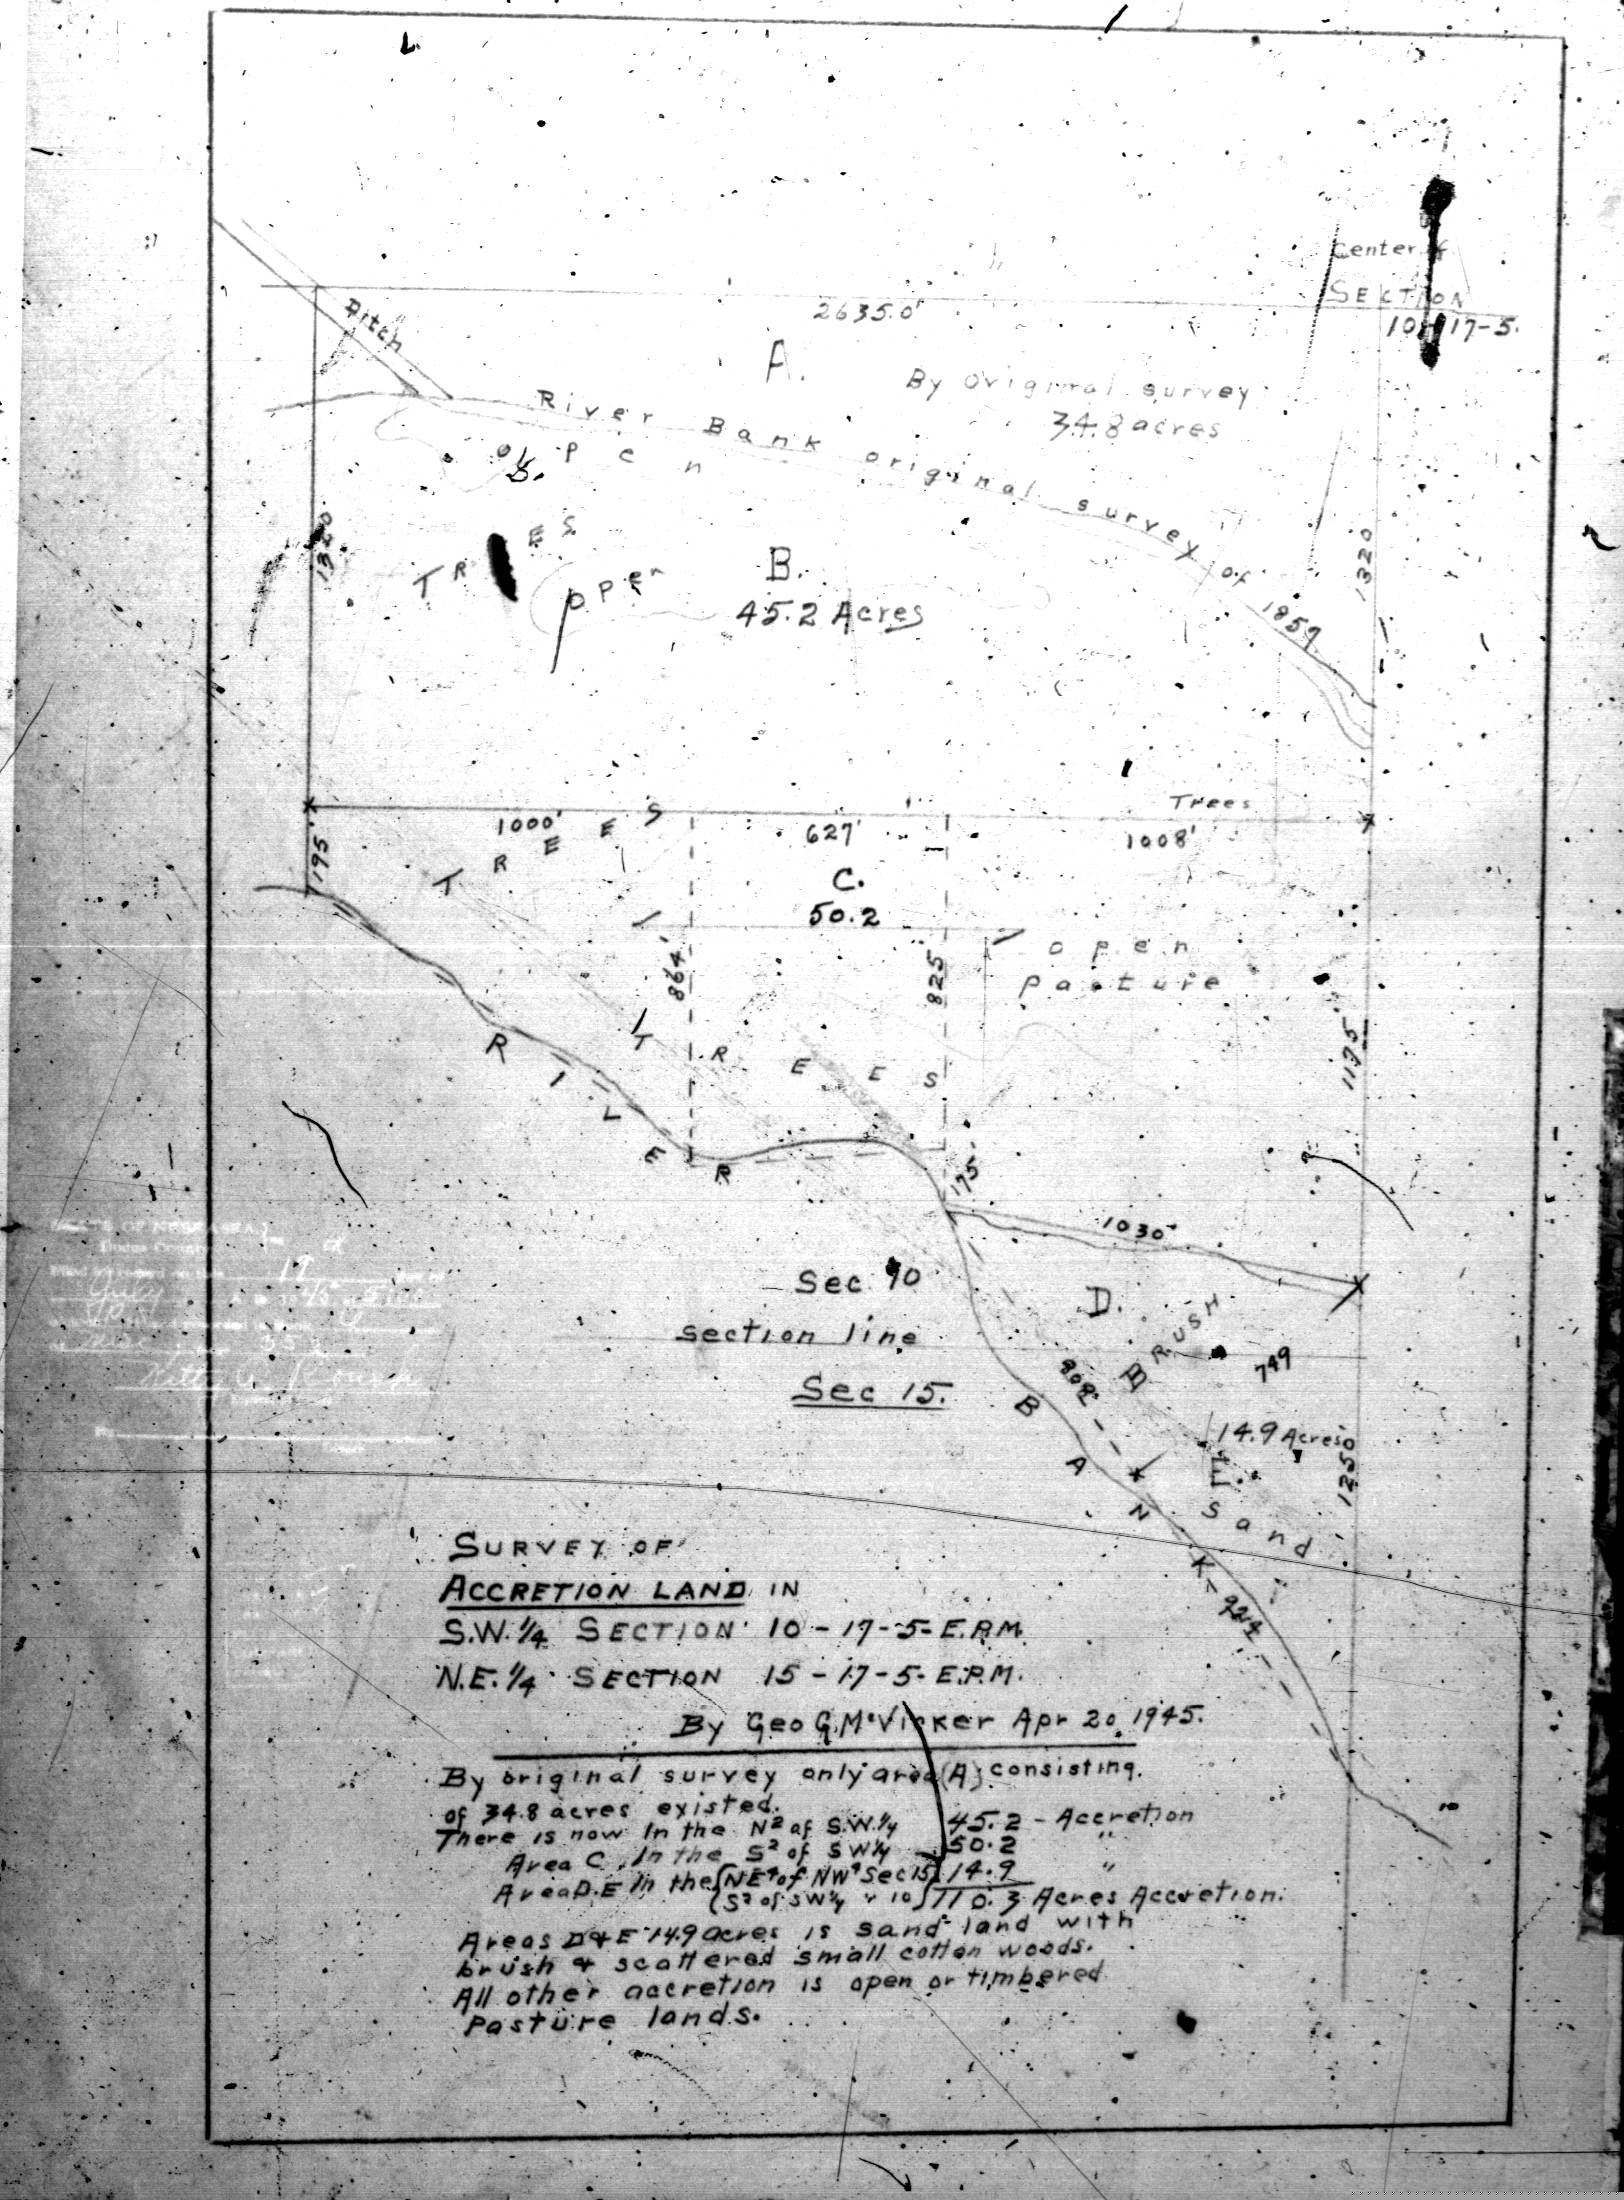 Center of
SECTION
10-17-5.
2635.0'
Ditch
A.
By original survey
34.8 acres
River Bank original survey of 1857
open
TREES
open
B.
45.2 Acres
1320
1320
Trees
1000'
627'
1008'
195'
TREES
C.
50.2
864'
825
open
pasture
1195'
TREES
RIVER
175
1030
Sec 10
section line
Sec 15.
D.
BRUSH
749
808
14.9 Acres
E.
Sand
1250
BANK
924
STATE OF NEBRASKA
Dodge County
SURVEY OF
ACCRETION LAND IN
S.W. 1/4 SECTION 10-17-5-E.P.M.
N.E. 1/4 SECTION 15-17-5-E.P.M.
By Geo G. McVicker Apr 20 1945.
By original survey only area (A) consisting.
of 34.8 acres existed.
There is now In the N2 of S.W. 1/4 45.2 - Accretion
Area C. In the S2 of SW 1/4 50.2 "
Area D.E In the NE4 of NW4 Sec 15 14.9 "
S2 of SW 1/4 " 10 110.3 Acres Accretion.
Areas D & E 14.9 acres is sand land with
brush & scattered small cotton woods.
All other accretion is open or timbered
Pasture lands.